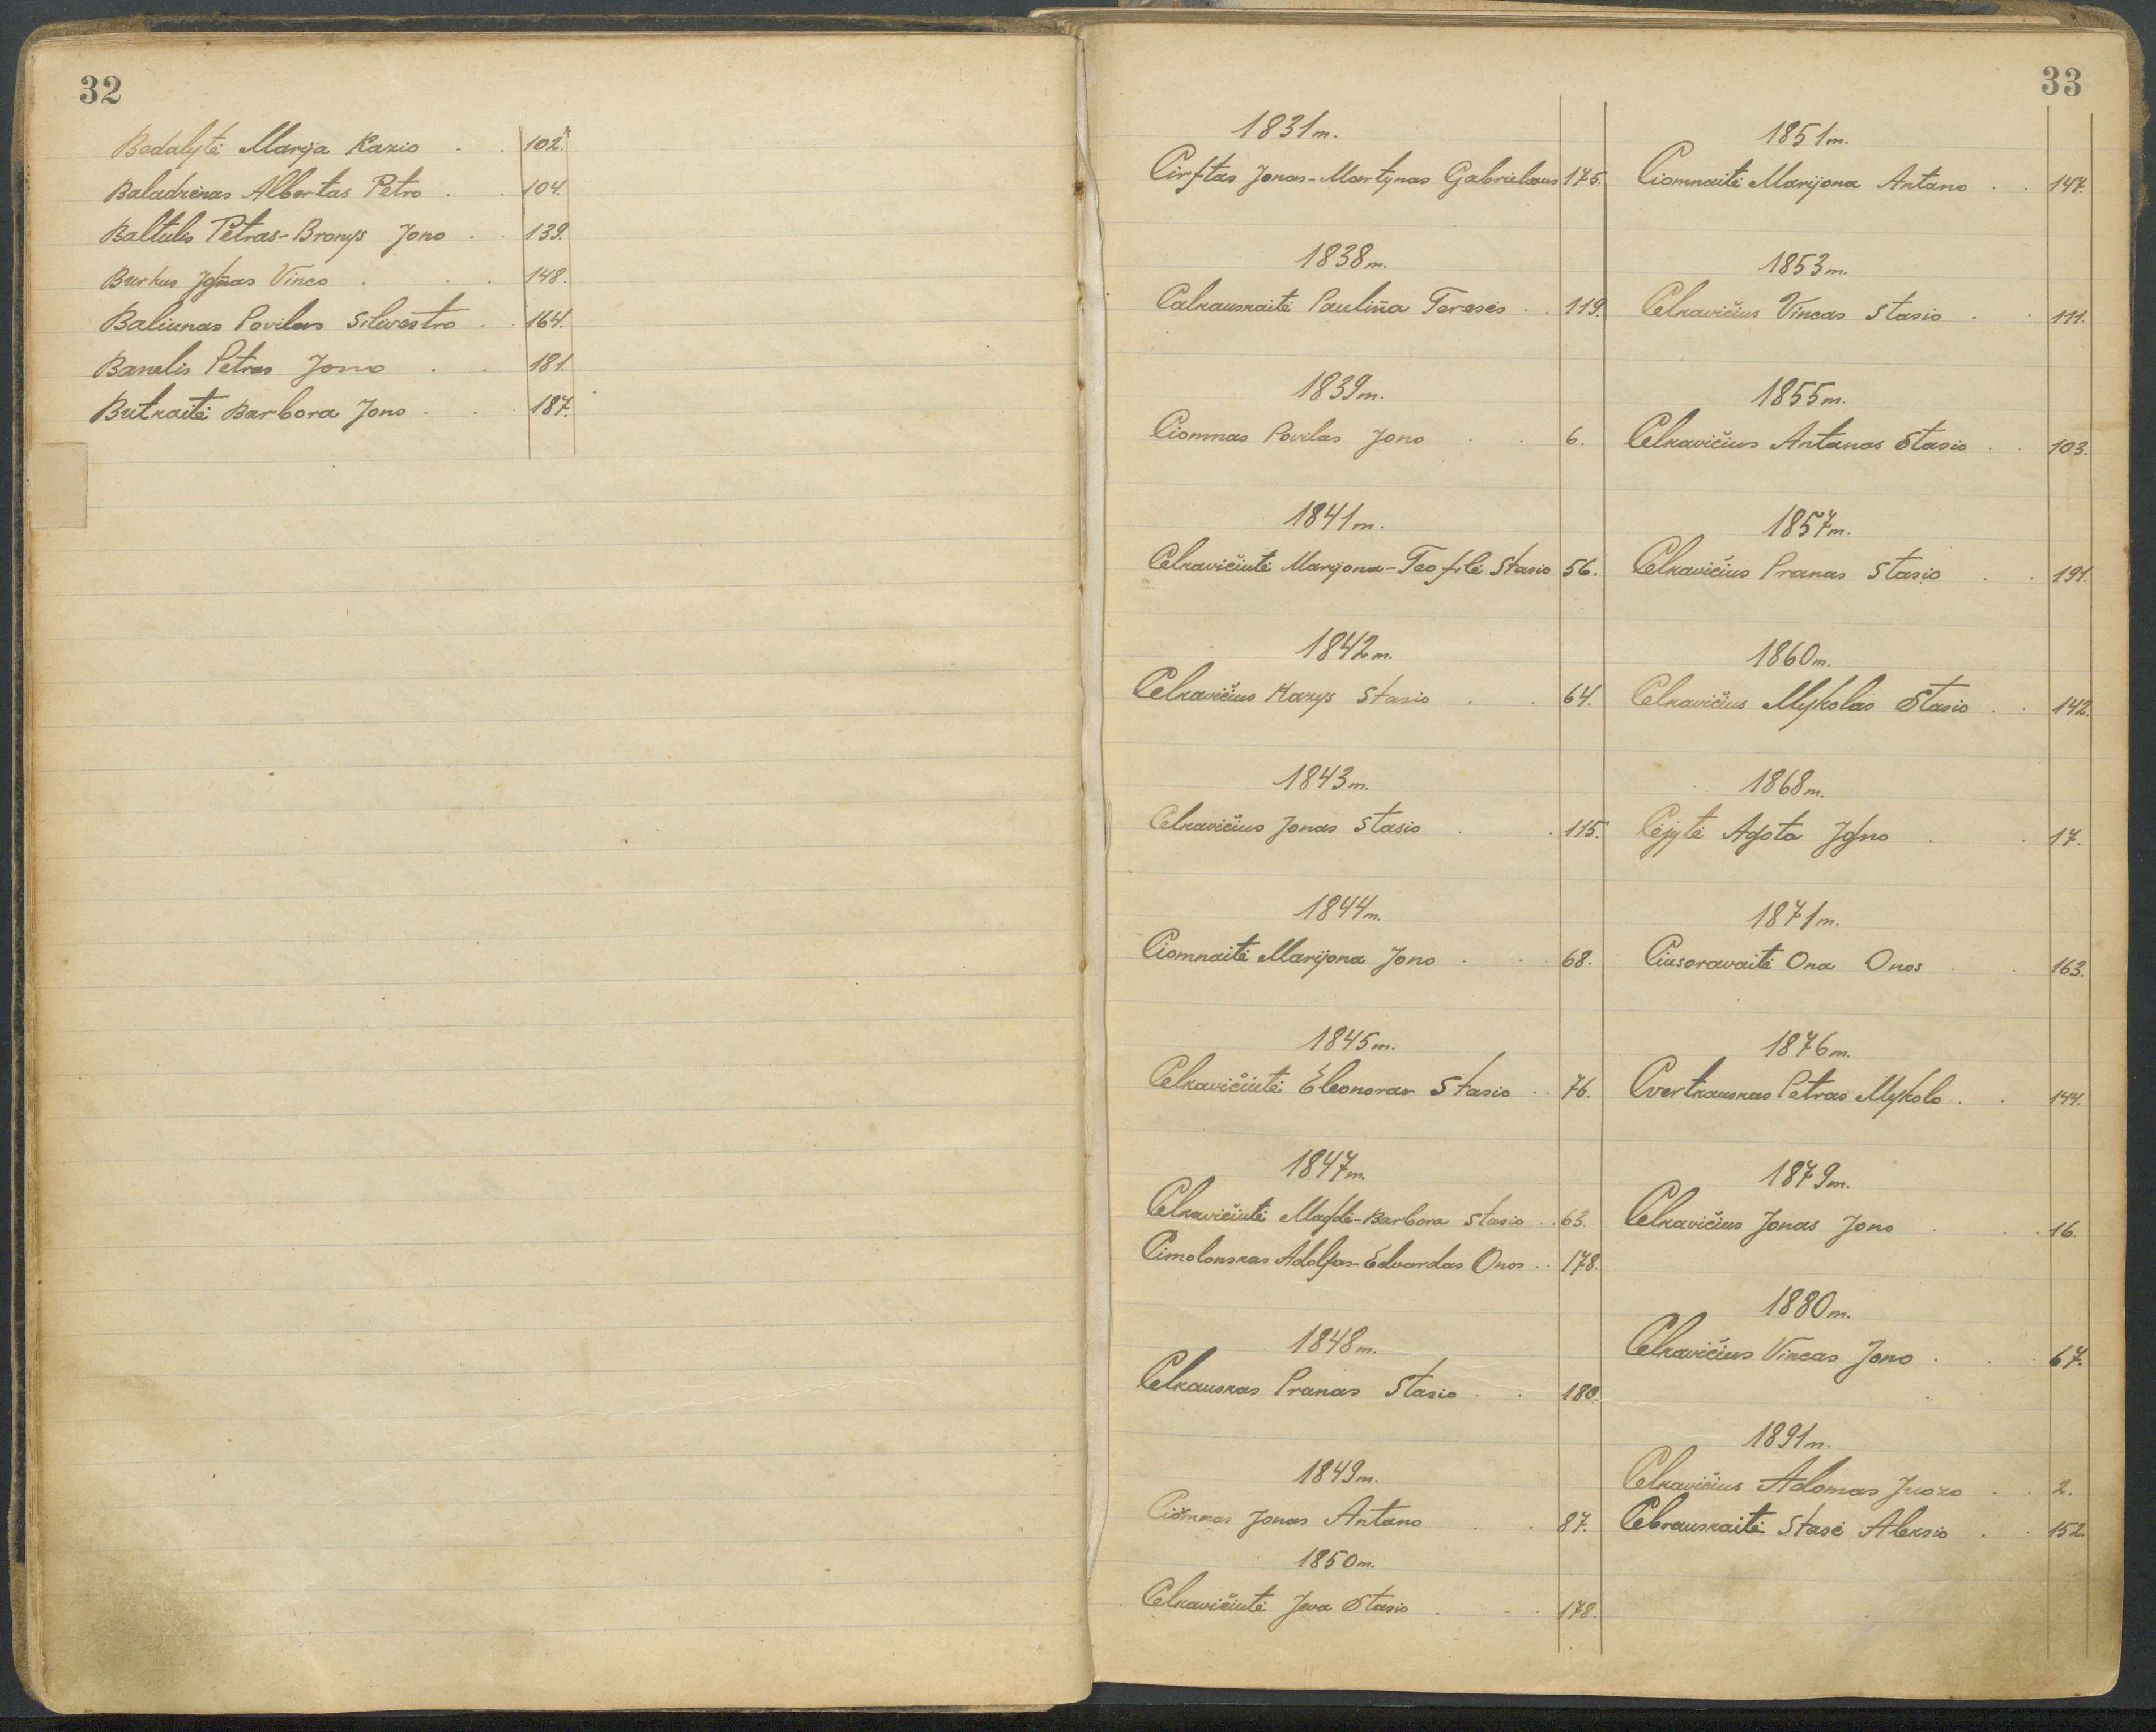 32
Bedalytė Marija Kazio . . 102.
Baladzėnas Albertas Petro . . 104.
Baltulis Petras-Bronys Jono . . 139.
Burkus Jgnas Vinco . . . 148.
Baliunas Povilas Silvestro . . 164.
Banelis Petras Jono . . 181.
Butkaitė Barbora Jono . . . 187.
33
1831 m.
Cirftas Jonas-Martynas Gabrieliaus 175.
1838 m.
Calkauskaitė Paulina Teresės . . 119.
1839 m.
Ciomnas Povilas Jono . . 6.
1841 m.
Celkavičiutė Marijona-Teofilė Stasio 56.
1842 m.
Celkavičius Kazys Stasio . . 64.
1843 m.
Celkavičius Jonas Stasio . . 115.
1844 m.
Ciomnaitė Marijona Jono . . . 68.
1845 m.
Celkavičiutė Eleonora Stasio . . 76.
1847 m.
Celkavičiutė Magdė-Barbora Stasio . . 63.
Cimolonskas Adolfas-Edvardas Onos . . 178.
1848 m.
Celkauskas Pranas Stasio . . 180.
1849 m.
Ciomnas Jonas Antano . . 87.
1850 m.
Celkavičiutė Jeva Stasio . . . 178.
1851 m.
Ciomnaitė Marijona Antano . . 147.
1853 m.
Celkavičius Vincas Stasio . . 111.
1855 m.
Celkavičius Antanas Stasio . . 103.
1857 m.
Celkavičius Pranas Stasio . . 191.
1860 m.
Celkavičius Mykolas Stasio . . 142.
1868 m.
Cėjytė Agota Jgno . . 17.
1871 m.
Ciusoravaitė Ona Onos . . 163.
1876 m.
Cvertkauskas Petras Mykolo . . 144.
1879 m.
Celkavičius Jonas Jono . . . 16.
1880 m.
Celkavičius Vincas Jono . . . 67.
1891 m.
Celkavičius Adomas Juozo . . 2.
Cebrauskaitė Stasė Aleksio . . 152.